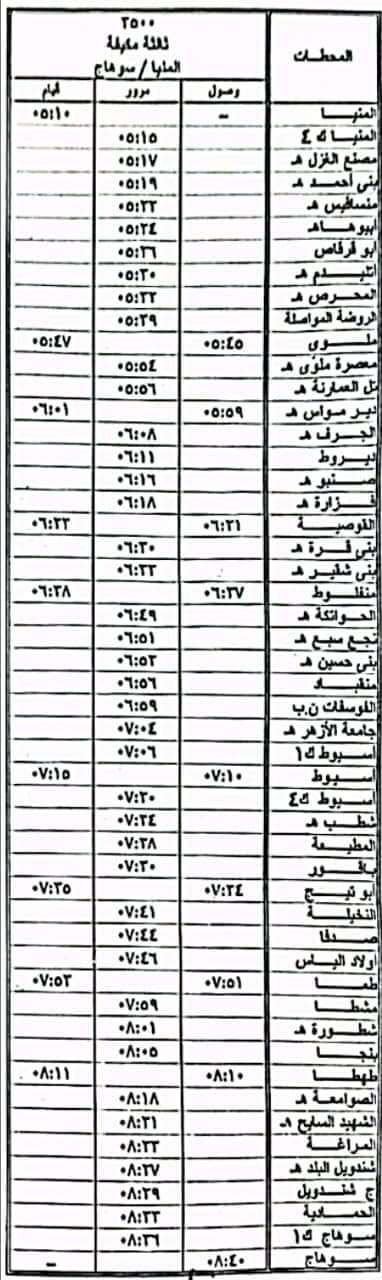 المحطات
٣٥٠٠
ثالثة مكيفة
المنيا/سوهاج
وصول مرور قيام
المنيا – ٠٥:١٠
المنيا ك ٤ ٠٥:١٥
مصنع الغزل هـ ٠٥:١٧
بنى أحمد هـ ٠٥:١٩
منسافيس هـ ٠٥:٢٢
أبيوها هـ ٠٥:٢٤
أبو قرقاص ٠٥:٢٦
أتليدم هـ ٠٥:٣٠
المحرص هـ ٠٥:٣٣
الروضة المواصلة ٠٥:٣٩
ملوى ٠٥:٤٥ ٠٥:٤٧
معصرة ملوى هـ ٠٥:٥٤
تل العمارنة هـ ٠٥:٥٦
دير مواس هـ ٠٥:٥٩ ٠٦:٠١
الجرف هـ ٠٦:٠٨
ديروط ٠٦:١١
صنبو هـ ٠٦:١٦
فزارة هـ ٠٦:١٨
القوصية ٠٦:٢١ ٠٦:٢٢
بنى قرة هـ ٠٦:٣٠
بنى شقير هـ ٠٦:٣٣
منفلوط ٠٦:٣٧ ٠٦:٣٨
الحواتكة هـ ٠٦:٤٩
نجع سبع هـ ٠٦:٥١
بنى حسين هـ ٠٦:٥٣
منقباد ٠٦:٥٦
الفوسفات ن.ب ٠٦:٥٩
جامعة الأزهر هـ ٠٧:٠٤
أسيوط ك١ ٠٧:٠٦
أسيوط ٠٧:١٠ ٠٧:١٥
أسيوط ك٤ ٠٧:٢٠
شطب هـ ٠٧:٢٤
المطيعة ٠٧:٢٨
باقور ٠٧:٣٠
أبو تيج ٠٧:٣٤ ٠٧:٣٥
النخيلة ٠٧:٤١
صدفا ٠٧:٤٤
اولاد الياس ٠٧:٤٦
طما ٠٧:٥١ ٠٧:٥٣
مشطا ٠٧:٥٩
شطورة هـ ٠٨:٠١
بنجا ٠٨:٠٥
طهطا ٠٨:١٠ ٠٨:١١
الصوامعة هـ ٠٨:١٨
الشهيد السايح هـ ٠٨:٢١
المراغة ٠٨:٢٣
شندويل البلد هـ ٠٨:٢٧
ج شندويل ٠٨:٢٩
الحمادية ٠٨:٣٣
سوهاج ك١ ٠٨:٣٦
سوهاج ٠٨:٤٠ –